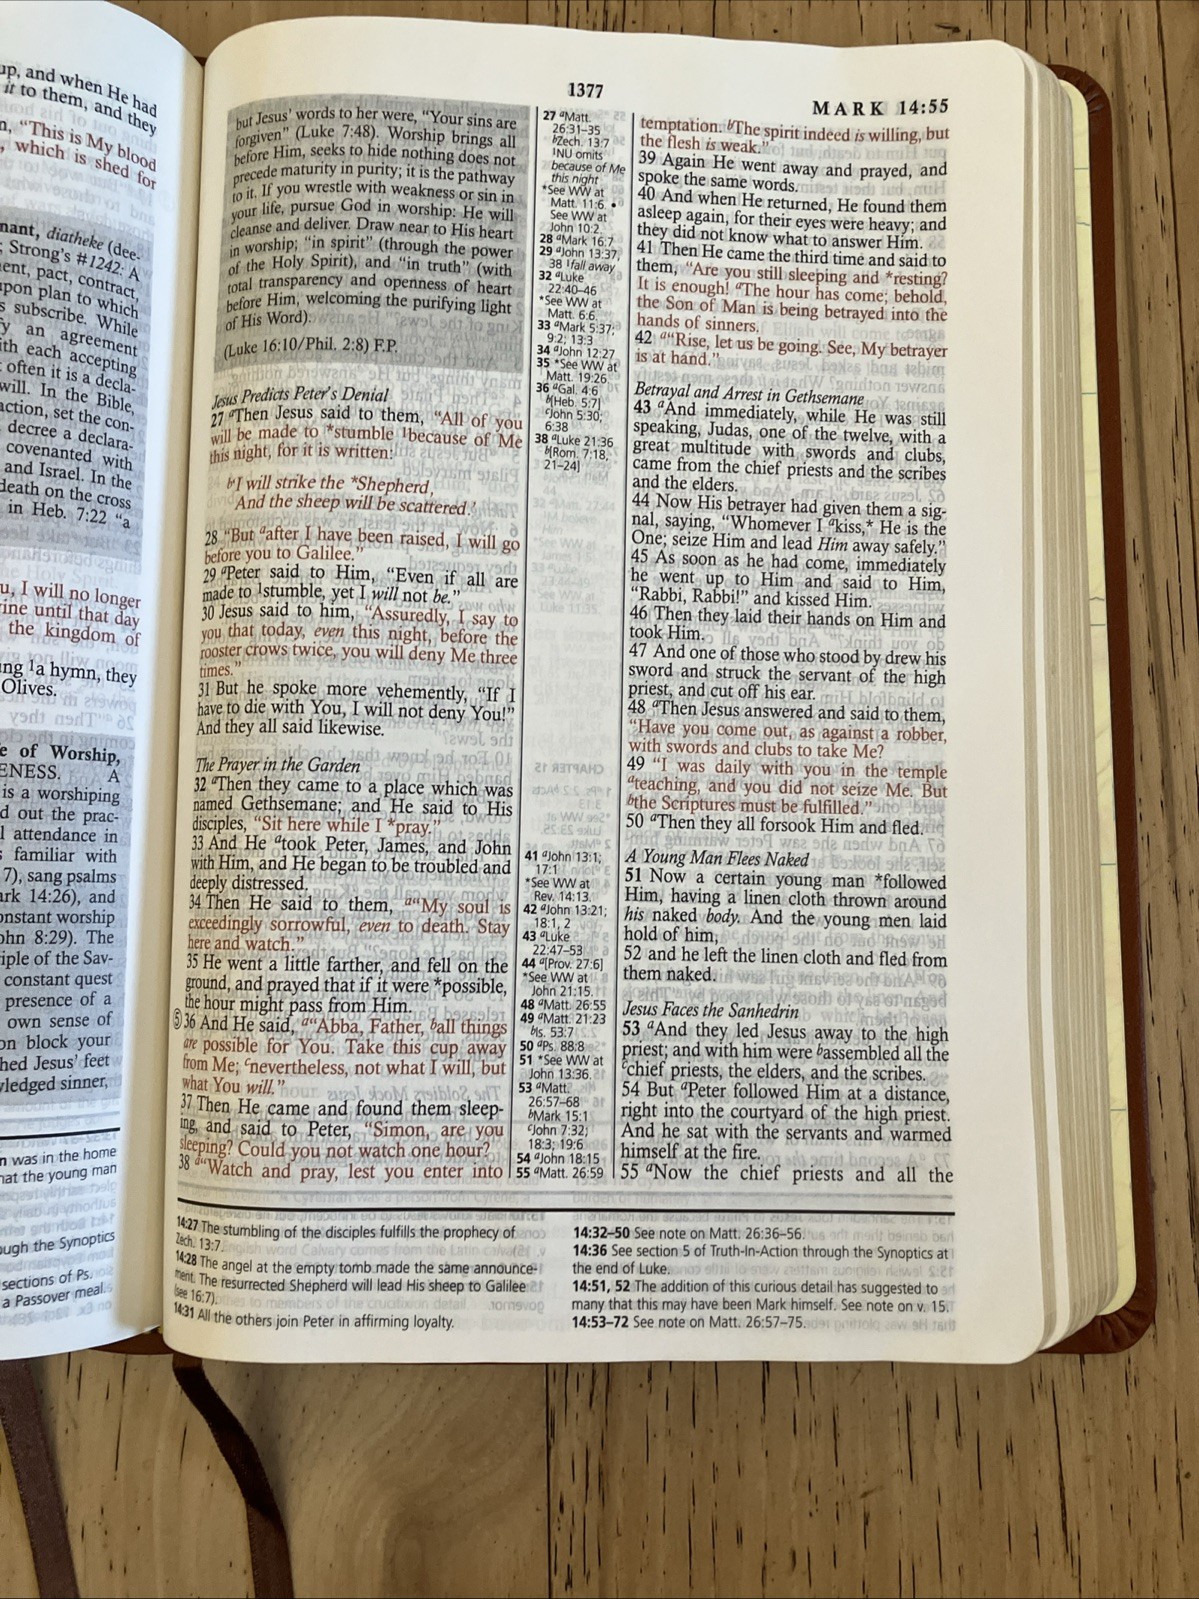 up, and when He had
it to them, and they
"This is My blood
which is shed for
nant, diatheke (dee-
Strong's #1242: A
ent, pact, contract,
upon plan to which
s subscribe. While
an agreement
ith each accepting
often it is a decla-
will. In the Bible,
action, set the con-
decree a declara-
covenanted with
and Israel. In the
death on the cross
in Heb. 7:22 "a
u, I will no longer
vine until that day
the kingdom of
ing 1a hymn, they
Olives.
e of Worship,
ENESS. A
is a worshiping
d out the prac-
l attendance in
s familiar with
7), sang psalms
ark 14:26), and
onstant worship
ohn 8:29). The
iple of the Sav-
constant quest
presence of a
own sense of
on block your
hed Jesus' feet
wledged sinner,
n was in the home
hat the young man
ough the Synoptics
sections of Ps.
a Passover meal.
1377
MARK 14:55
but Jesus' words to her were, "Your sins are
forgiven" (Luke 7:48). Worship brings all
before Him, seeks to hide nothing does not
precede maturity in purity; it is the pathway
to it. If you wrestle with weakness or sin in
your life, pursue God in worship: He will
cleanse and deliver. Draw near to His heart
in worship; "in spirit" (through the power
of the Holy Spirit), and "in truth" (with
total transparency and openness of heart
before Him, welcoming the purifying light
of His Word).
(Luke 16:10/Phil. 2:8) F.P.
Jesus Predicts Peter's Denial
27 aThen Jesus said to them, "All of you
will be made to *stumble 1because of Me
this night, for it is written:
b'I will strike the *Shepherd,
And the sheep will be scattered.'
28 "But aafter I have been raised, I will go
before you to Galilee."
29 aPeter said to Him, "Even if all are
made to 1stumble, yet I will not be."
30 Jesus said to him, "Assuredly, I say to
you that today, even this night, before the
rooster crows twice, you will deny Me three
times."
31 But he spoke more vehemently, "If I
have to die with You, I will not deny You!"
And they all said likewise.
The Prayer in the Garden
32 aThen they came to a place which was
named Gethsemane; and He said to His
disciples, "Sit here while I *pray."
33 And He atook Peter, James, and John
with Him, and He began to be troubled and
deeply distressed.
34 Then He said to them, a"My soul is
exceedingly sorrowful, even to death. Stay
here and watch."
35 He went a little farther, and fell on the
ground, and prayed that if it were *possible,
the hour might pass from Him.
⑤36 And He said, a"Abba, Father, ball things
are possible for You. Take this cup away
from Me; cnevertheless, not what I will, but
what You will."
37 Then He came and found them sleep-
ing, and said to Peter, "Simon, are you
sleeping? Could you not watch one hour?
38 a"Watch and pray, lest you enter into
27 aMatt.
26:31–35
bZech. 13:7
1NU omits
because of Me
this night
*See WW at
Matt. 11:6. •
See WW at
John 10:2.
28 aMark 16:7
29 aJohn 13:37,
38 1fall away
32 aLuke
22:40–46
*See WW at
Matt. 6:6.
33 aMark 5:37;
9:2; 13:3
34 aJohn 12:27
35 *See WW at
Matt. 19:26
36 aGal. 4:6
b[Heb. 5:7]
cJohn 5:30;
6:38
38 aLuke 21:36
b[Rom. 7:18,
21–24]
41 aJohn 13:1;
17:1
*See WW at
Rev. 14:13.
42 aJohn 13:21;
18:1, 2
43 aLuke
22:47–53
44 a[Prov. 27:6]
*See WW at
John 21:15.
48 aMatt. 26:55
49 aMatt. 21:23
bIs. 53:7
50 aPs. 88:8
51 *See WW at
John 13:36.
53 aMatt.
26:57–68
bMark 15:1
cJohn 7:32;
18:3; 19:6
54 aJohn 18:15
55 aMatt. 26:59
temptation. bThe spirit indeed is willing, but
the flesh is weak."
39 Again He went away and prayed, and
spoke the same words.
40 And when He returned, He found them
asleep again, for their eyes were heavy; and
they did not know what to answer Him.
41 Then He came the third time and said to
them, "Are you still sleeping and *resting?
It is enough! aThe hour has come; behold,
the Son of Man is being betrayed into the
hands of sinners.
42 a"Rise, let us be going. See, My betrayer
is at hand."
Betrayal and Arrest in Gethsemane
43 aAnd immediately, while He was still
speaking, Judas, one of the twelve, with a
great multitude with swords and clubs,
came from the chief priests and the scribes
and the elders.
44 Now His betrayer had given them a sig-
nal, saying, "Whomever I akiss,* He is the
One; seize Him and lead Him away safely."
45 As soon as he had come, immediately
he went up to Him and said to Him,
"Rabbi, Rabbi!" and kissed Him.
46 Then they laid their hands on Him and
took Him.
47 And one of those who stood by drew his
sword and struck the servant of the high
priest, and cut off his ear.
48 aThen Jesus answered and said to them,
"Have you come out, as against a robber,
with swords and clubs to take Me?
49 "I was daily with you in the temple
ateaching, and you did not seize Me. But
bthe Scriptures must be fulfilled."
50 aThen they all forsook Him and fled.
A Young Man Flees Naked
51 Now a certain young man *followed
Him, having a linen cloth thrown around
his naked body. And the young men laid
hold of him,
52 and he left the linen cloth and fled from
them naked.
Jesus Faces the Sanhedrin
53 aAnd they led Jesus away to the high
priest; and with him were bassembled all the
cchief priests, the elders, and the scribes.
54 But aPeter followed Him at a distance,
right into the courtyard of the high priest.
And he sat with the servants and warmed
himself at the fire.
55 aNow the chief priests and all the
14:27 The stumbling of the disciples fulfills the prophecy of
Zech. 13:7.
14:28 The angel at the empty tomb made the same announce-
ment. The resurrected Shepherd will lead His sheep to Galilee
(see 16:7).
14:31 All the others join Peter in affirming loyalty.
14:32–50 See note on Matt. 26:36–56.
14:36 See section 5 of Truth-In-Action through the Synoptics at
the end of Luke.
14:51, 52 The addition of this curious detail has suggested to
many that this may have been Mark himself. See note on v. 15.
14:53–72 See note on Matt. 26:57–75.